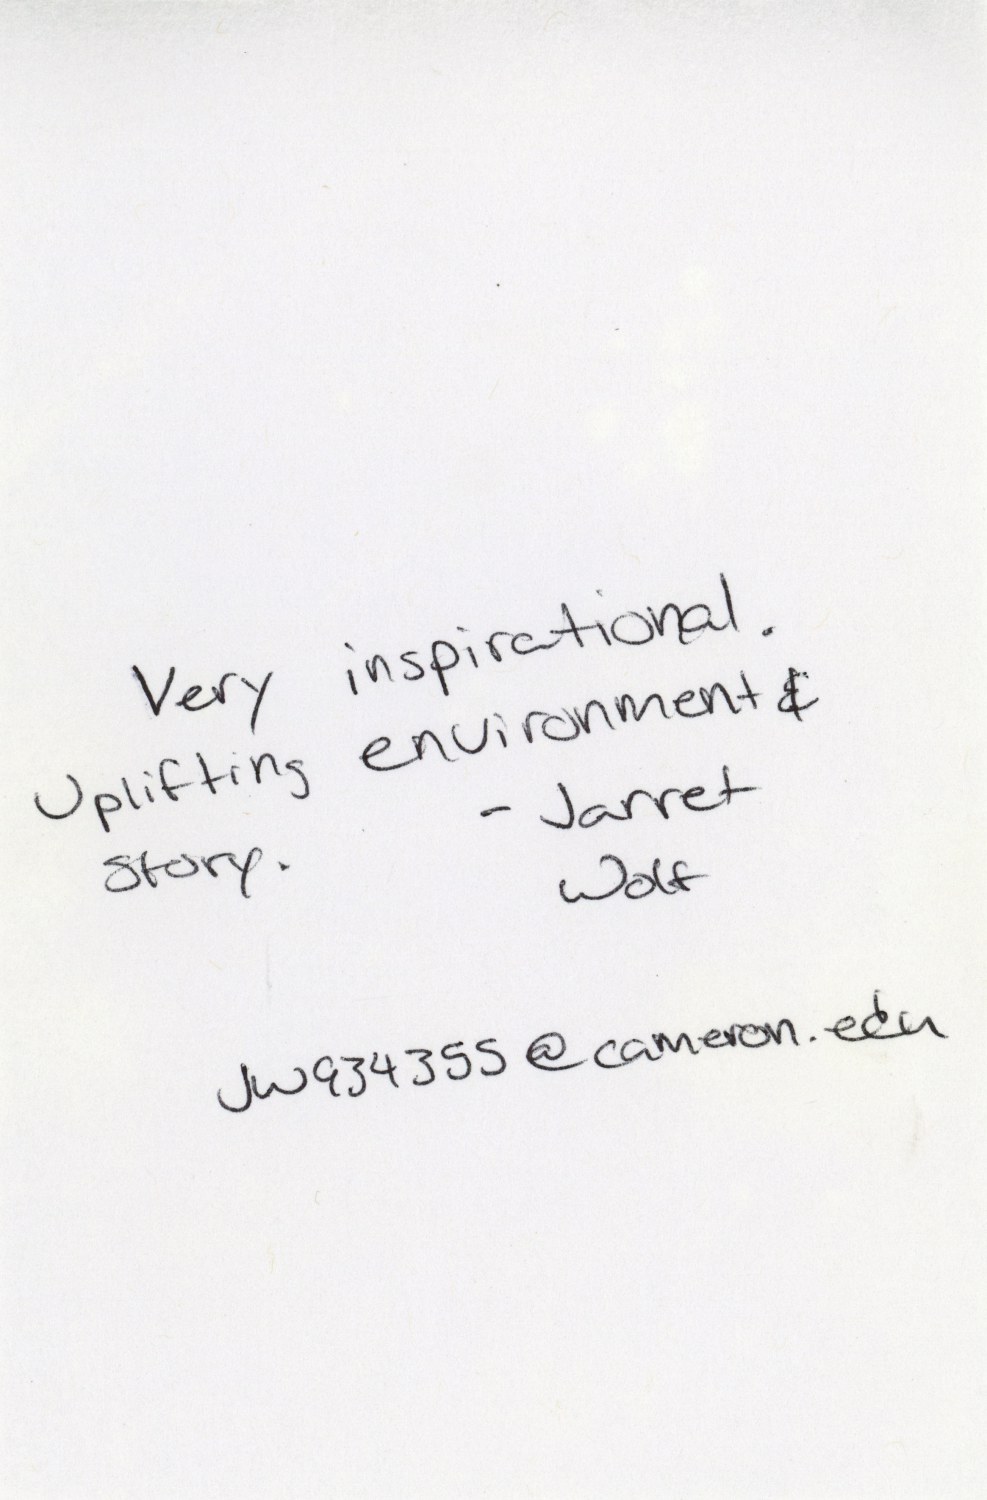 Very inspirational.
Uplifting environment &
story. - Jarret
Wolf
JW934355@cameron.edu